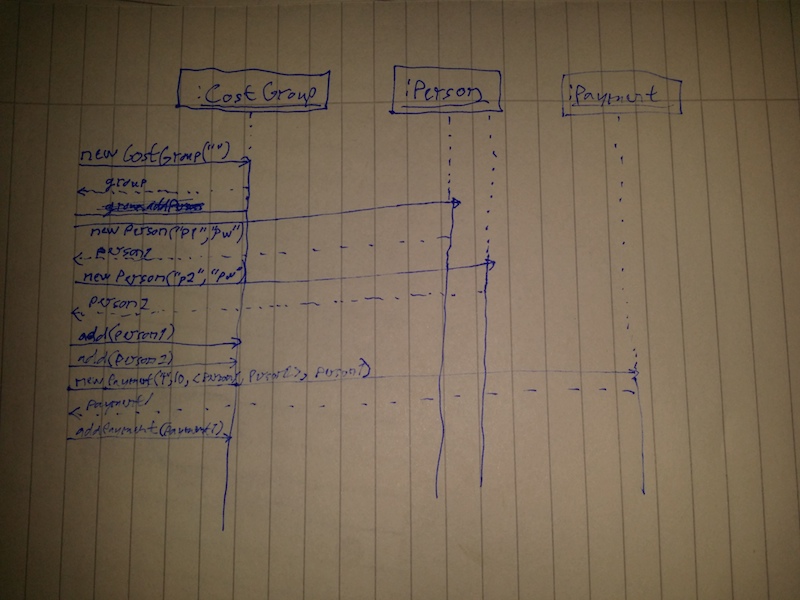 :CostGroup
:Person
:Payment
new CostGroup("")
group
new Person("p1","pw")
person1
new Person("p2","pw")
person2
add(person1)
add(person2)
new Payment("",10, <person1, person2>, person1)
payment1
addPayment(payment1)